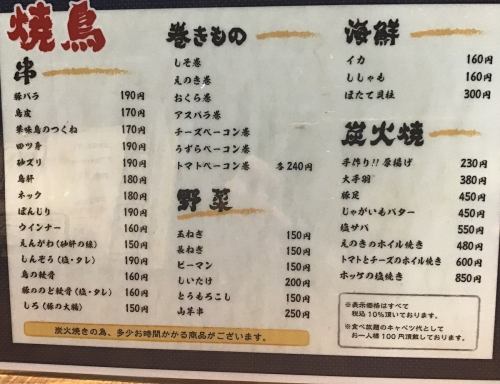 焼鳥
串
豚バラ 190円
鳥皮 170円
華味鳥のつくね 170円
四ツ身 190円
砂ズリ 190円
鳥肝 180円
ネック 180円
ぼんじり 190円
ウインナー 160円
えんがわ(砂肝の縁) 150円
しんぞう(塩・タレ) 190円
鳥の軟骨 160円
豚ののど軟骨(塩・タレ) 160円
しろ(豚の大腸) 150円
巻きもの
しそ巻
えのき巻
おくら巻
アスパラ巻
チーズベーコン巻
うずらベーコン巻
トマトベーコン巻 各240円
野菜
玉ねぎ 150円
長ねぎ 150円
ピーマン 150円
しいたけ 200円
とうもろこし 150円
山芋串 250円
海鮮
イカ 160円
ししゃも 160円
ほたて貝柱 300円
炭火焼
手作り!!厚揚げ 230円
大手羽 380円
豚足 450円
じゃがいもバター 450円
塩サバ 550円
えのきのホイル焼き 480円
トマトとチーズのホイル焼き 600円
ホッケの塩焼き 850円
※表示価格はすべて
税込10%頂いております。
※食べ放題のキャベツ代として
お一人様100円頂戴しております。
炭火焼きの為、多少お時間かかる商品がございます。